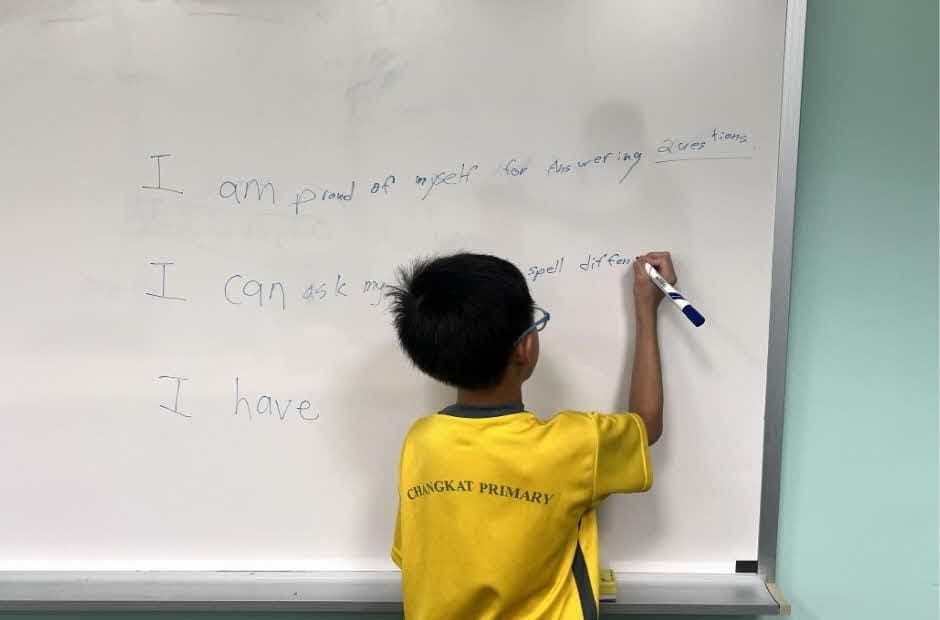 I am proud of myself for Answering Questions.
I can ask my spell
I have
CHANGKAT PRIMARY